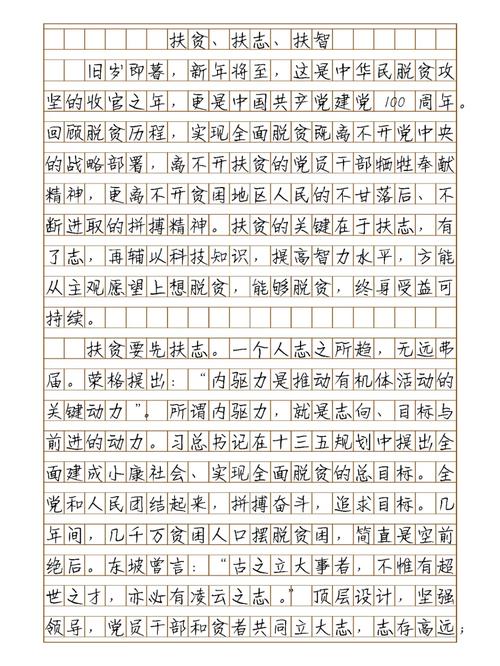 扶贫、扶志、扶智
旧岁即暮，新年将至，这是中华民脱贫攻
坚的收官之年，更是中国共产党建党100周年。
回顾脱贫历程，实现全面脱贫既离不开党中央
的战略部署，离不开扶贫的党员干部牺牲奉献
精神，更离不开贫困地区人民的不甘落后、不
断进取的拼搏精神。扶贫的关键在于扶志，有
了志，再辅以科技知识，提高智力水平，方能
从主观愿望上想脱贫，能够脱贫，终身受益可
持续。
扶贫要先扶志。一个人志之所趋，无远弗
届。荣格提出：“内驱力是推动有机体活动的
关键动力”。所谓内驱力，就是志向、目标与
前进的动力。习总书记在十三五规划中提出全
面建成小康社会、实现全面脱贫的总目标。全
党和人民团结起来，拼搏奋斗，追求目标。几
年间，几千万贫困人口摆脱贫困，简直是空前
绝后。东坡曾言：“古之立大事者，不惟有超
世之才，亦必有凌云之志。”顶层设计，坚强
领导，党员干部和贫者共同立大志，志存高远；